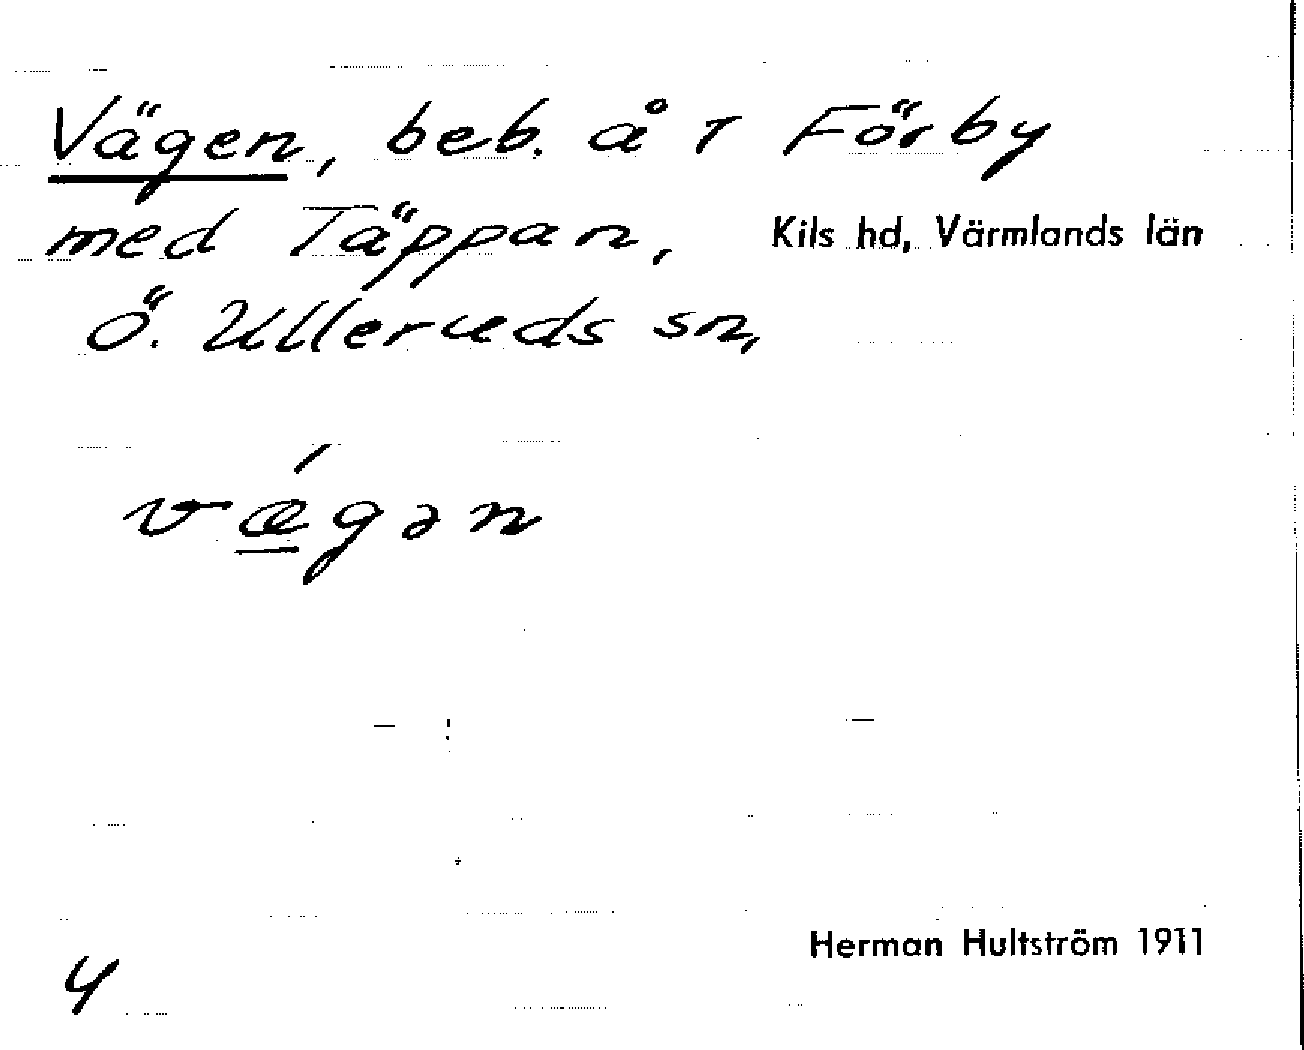 Vägen, beb. å T Förby
med Täppan, Kils hd, Värmlands län
Ö. Ulleruds sn,
vǽ̲gən
Herman Hultström 1911
4